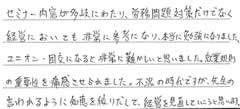 セミナー内容が多岐にわたり、労務問題対策だけでなく
経営においても非常に参考になり、本当に勉強になりました。
ユニオン・団交になると非常に難かしいと思いました。就業規則
の重要性を痛感させられました。不況の時代ですが、先生の
言われるように知恵を絞りだして、経営を見直していこうと思います